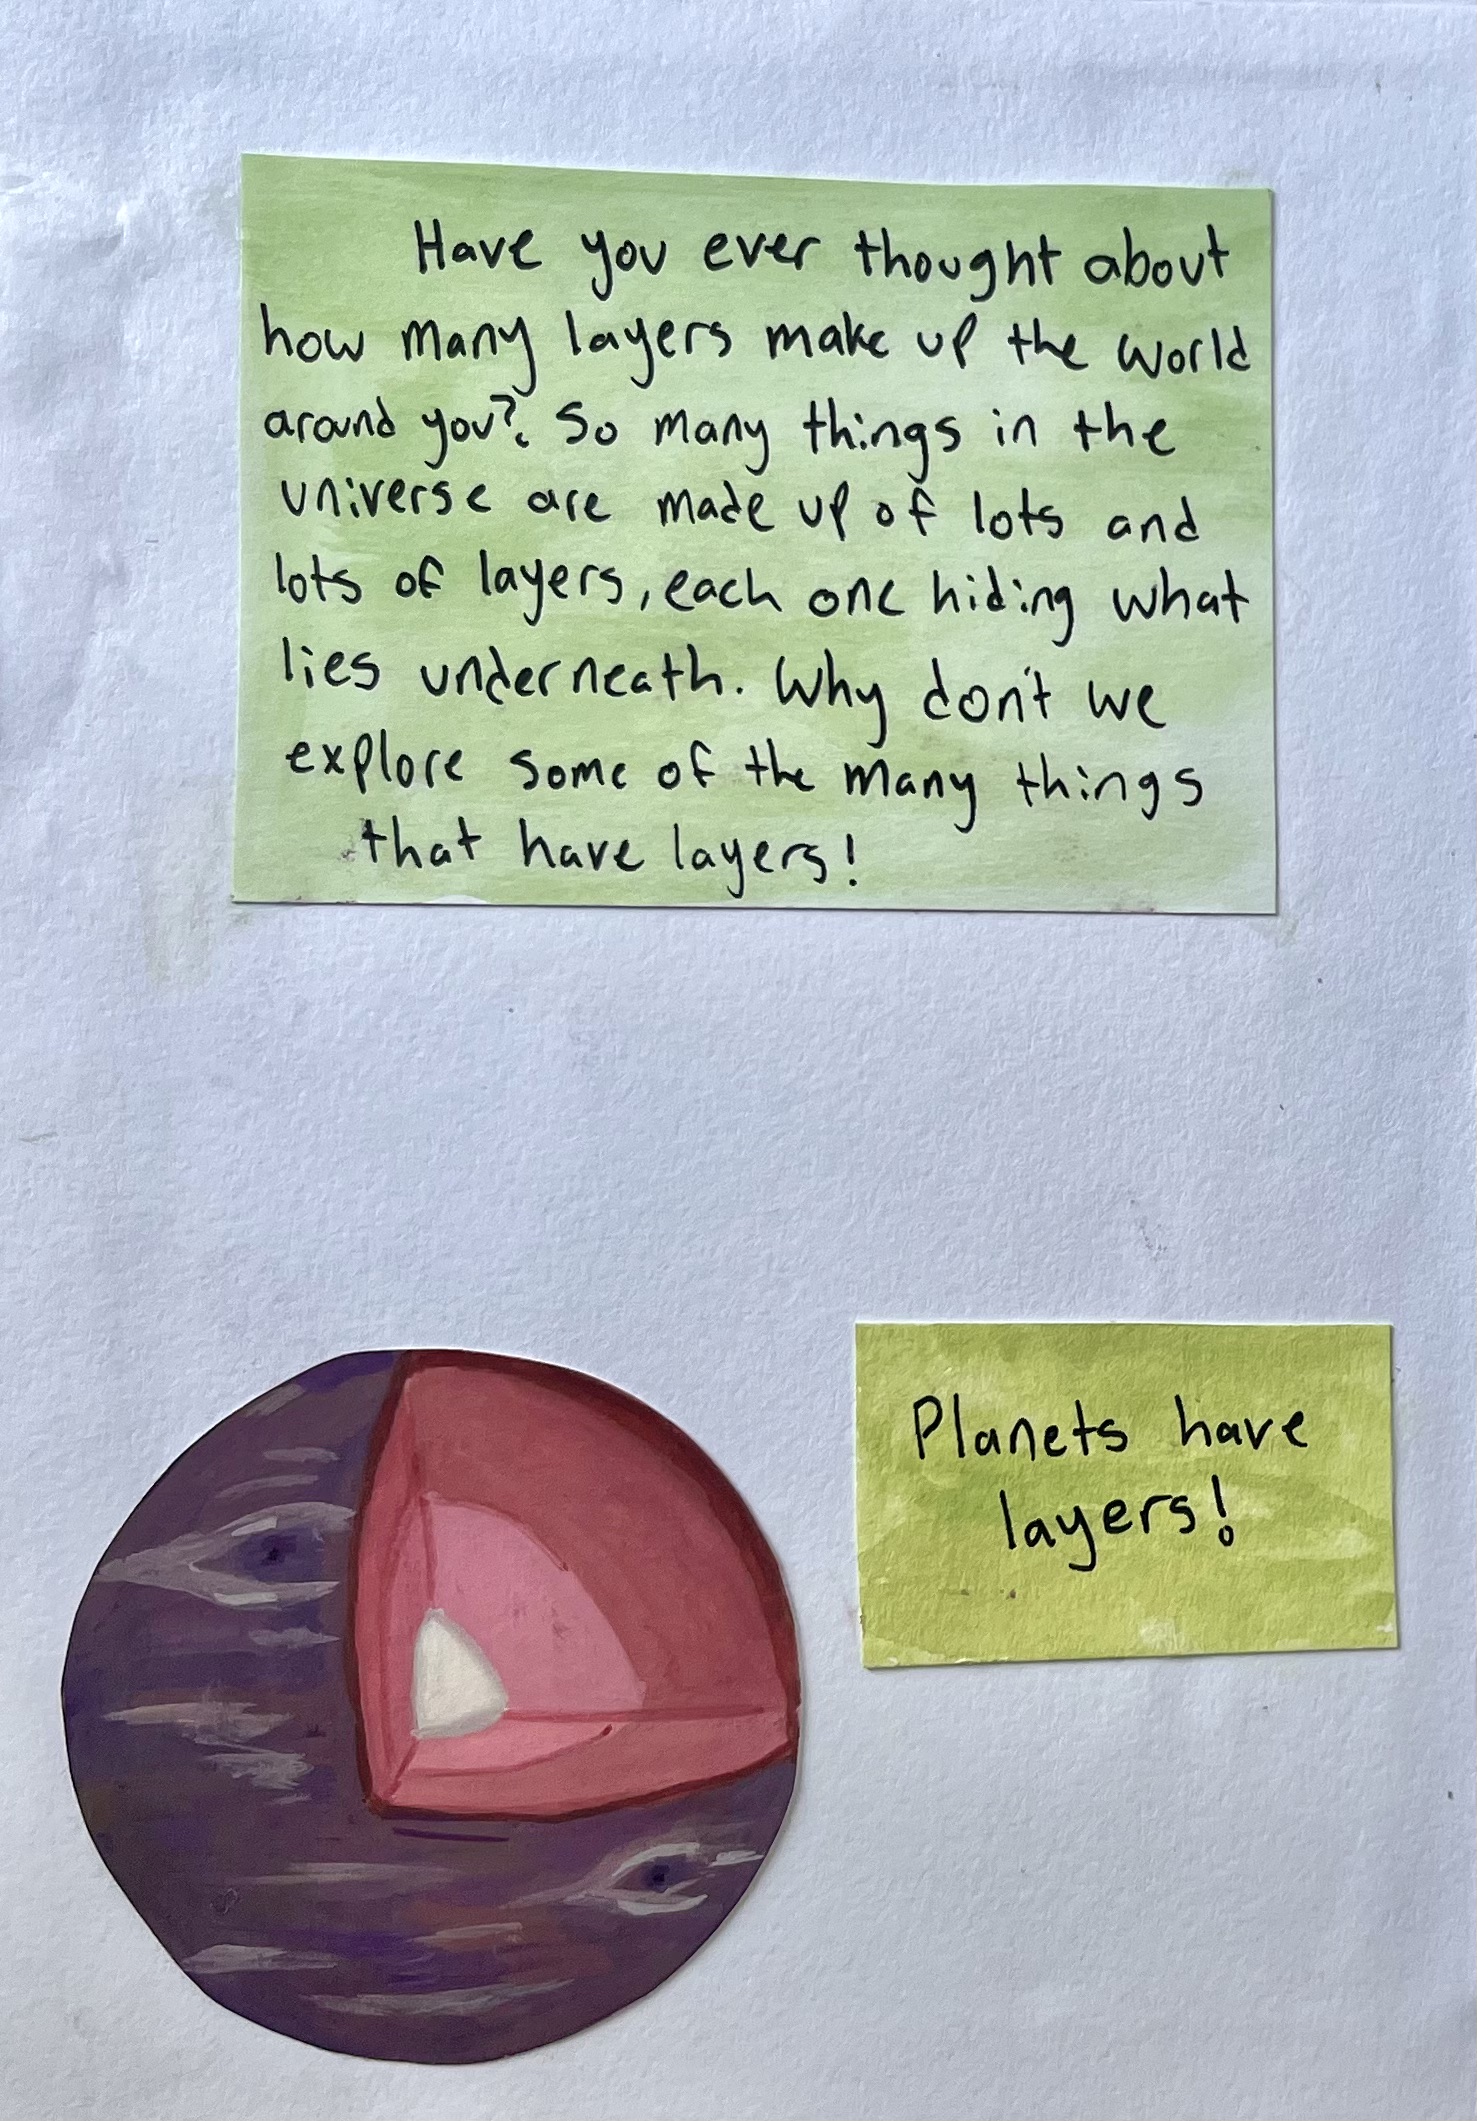 Have you ever thought about
how many layers make up the world
around you? So many things in the
universe are made up of lots and
lots of layers, each one hiding what
lies underneath. Why don't we
explore some of the many things
that have layers!
Planets have
layers!